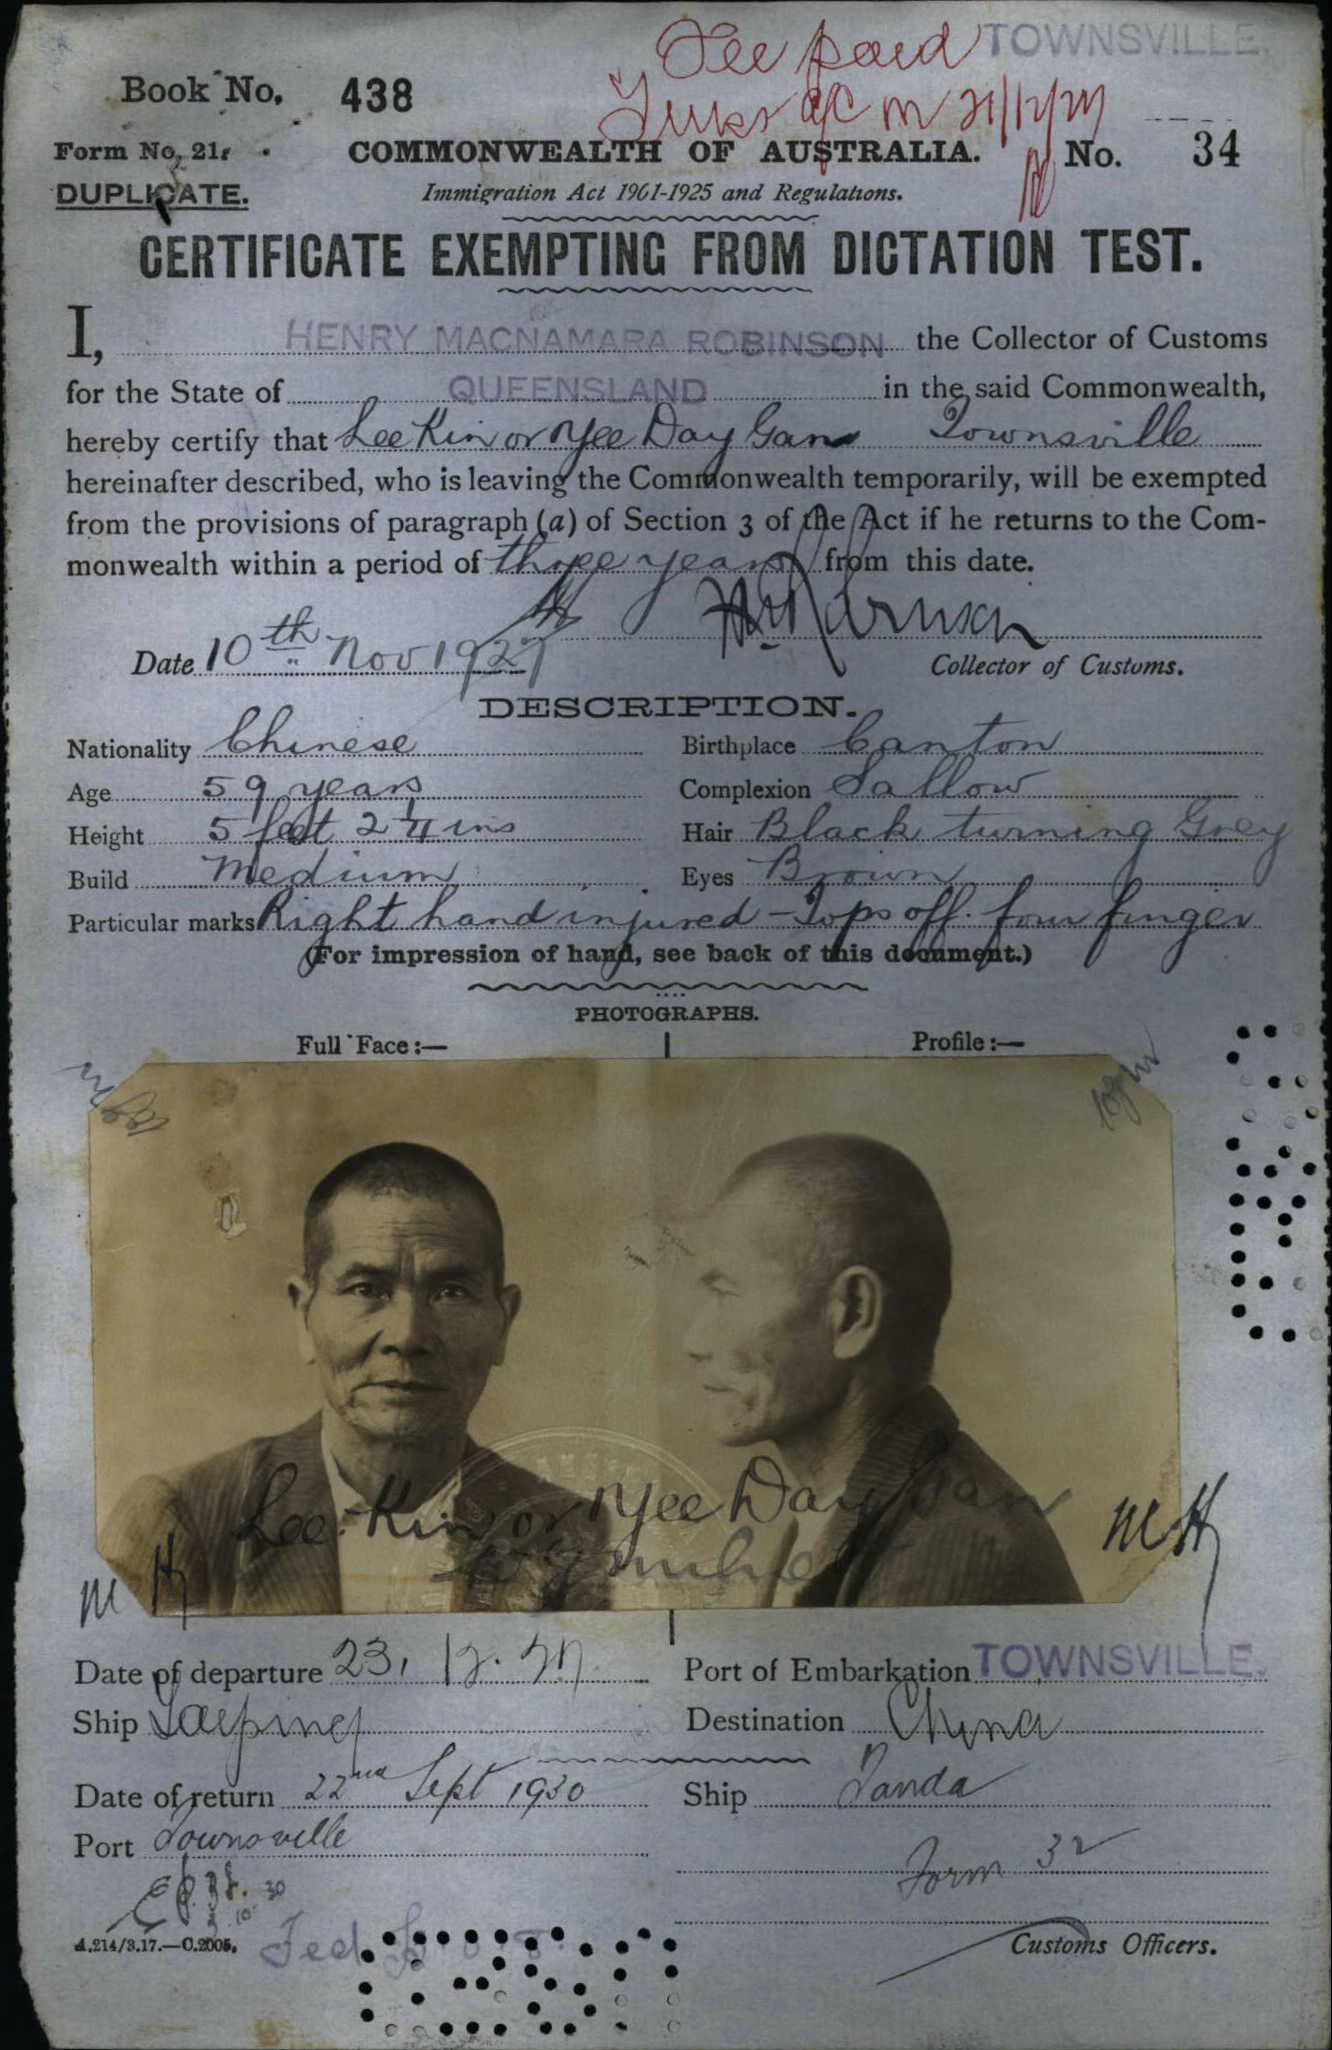 Fee paid TOWNSVILLE.
Book No. 438
21/12/27
Form No. 21. COMMONWEALTH OF AUSTRALIA. No. 34
DUPLICATE. Immigration Act 1901-1925 and Regulations.
CERTIFICATE EXEMPTING FROM DICTATION TEST.
I, HENRY MACNAMARA ROBINSON the Collector of Customs
for the State of QUEENSLAND in the said Commonwealth,
hereby certify that Lee Kin or Yee Day Gan Townsville
hereinafter described, who is leaving the Commonwealth temporarily, will be exempted
from the provisions of paragraph (a) of Section 3 of the Act if he returns to the Com-
monwealth within a period of three years from this date.
Date 10th Nov 1927 Collector of Customs.
DESCRIPTION.
Nationality Chinese Birthplace Canton
Age 59 years Complexion Sallow
Height 5 feet 2 1/4 ins Hair Black turning Grey
Build Medium Eyes Brown
Particular marks Right hand injured - Tops off. four finger
(For impression of hand, see back of this document.)
PHOTOGRAPHS.
Full Face :— Profile :—
Lee Kin or Yee Day Gan
M H
M H
Date of departure 23. 12. 27. Port of Embarkation TOWNSVILLE.
Ship Taiping Destination China
Date of return 22nd Sept 1930 Ship Tanda
Port Townsville
Form 32
A.214/3.17.—C.2005. Customs Officers.